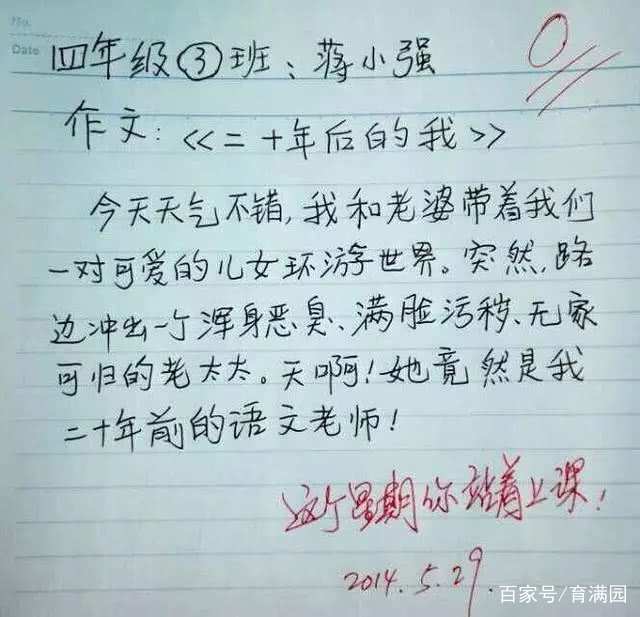 No.
Date
四年级③班：蒋小强
作文：《二十年后的我》
今天天气不错，我和老婆带着我们
一对可爱的儿女环游世界。突然，路
边冲出一个浑身恶臭、满脸污秽、无家
可归的老太太。天啊！她竟然是我
二十年前的语文老师！
0
这个星期你站着上课！
2014.5.29.
百家号/育满园